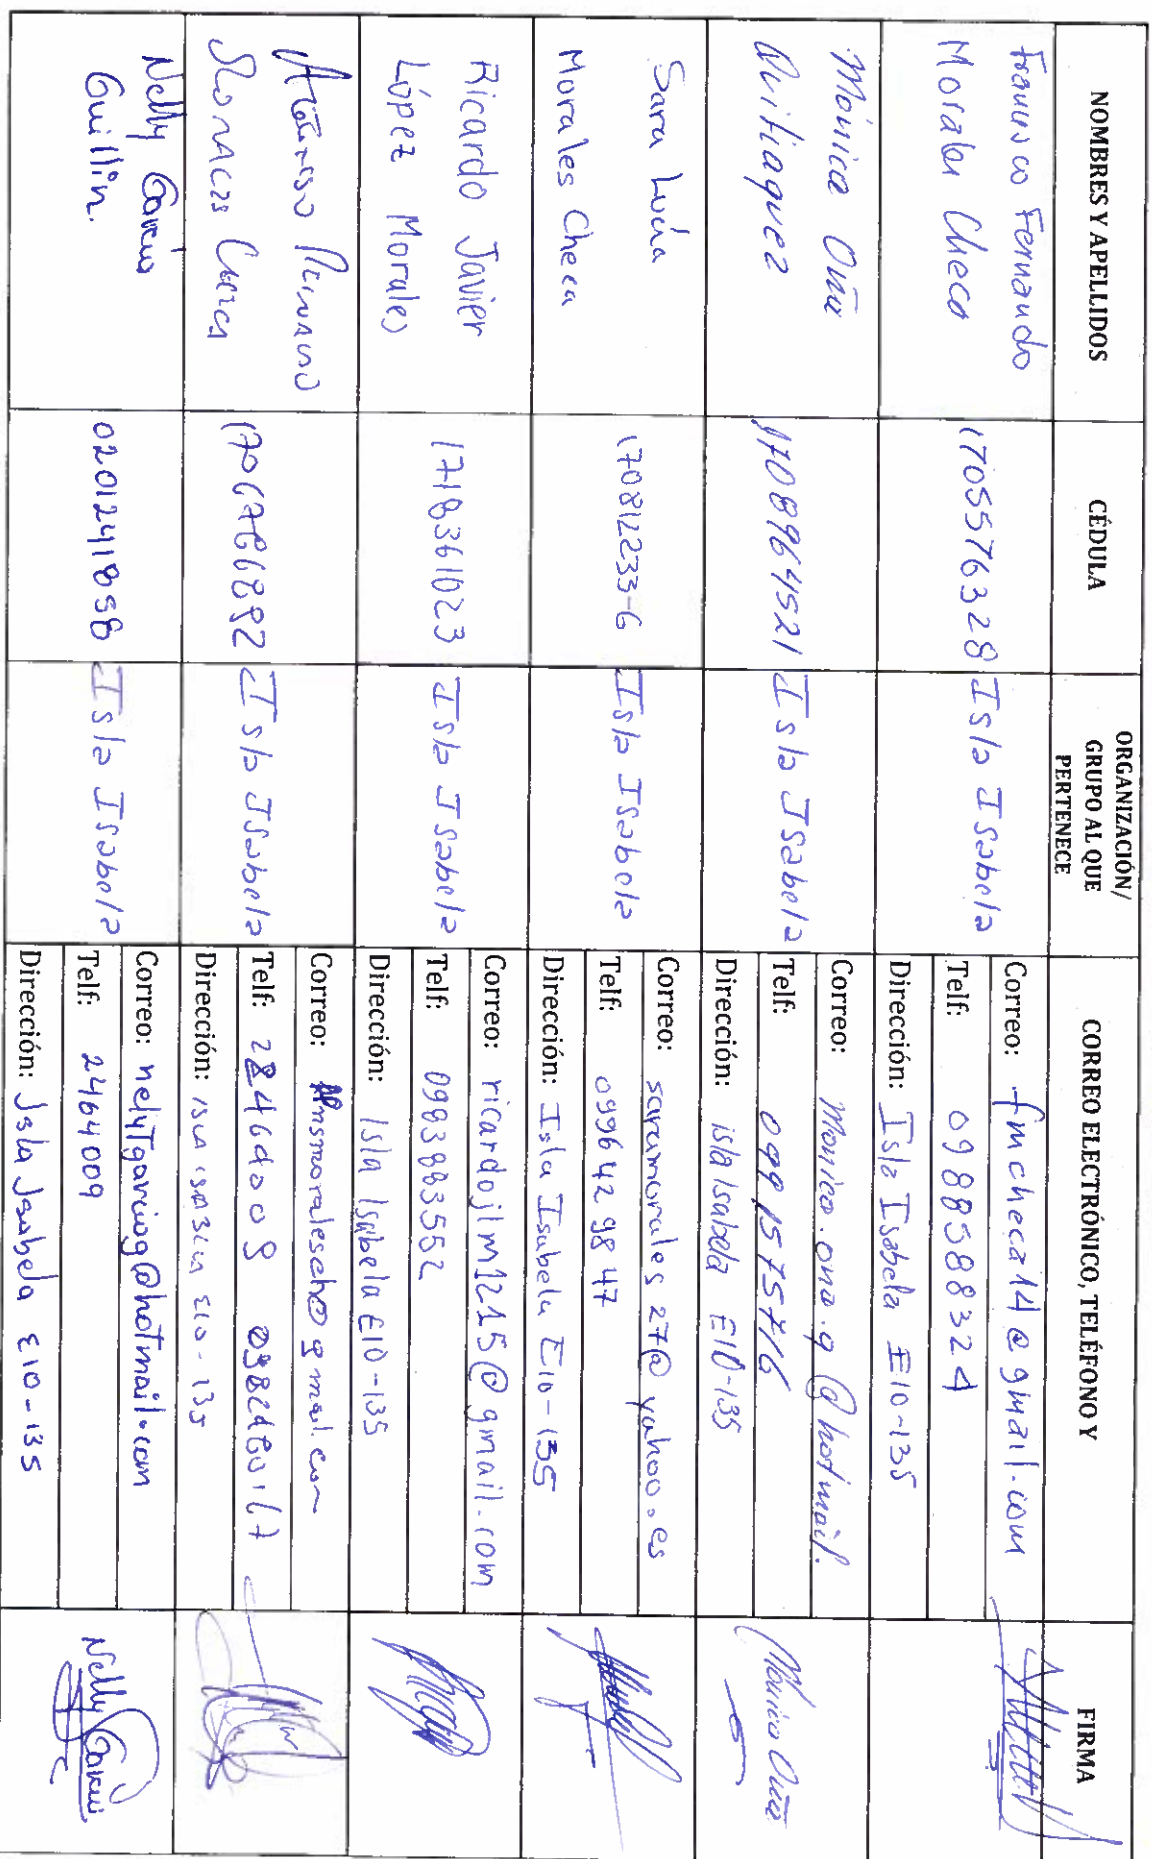 NOMBRES Y APELLIDOS
CÉDULA
ORGANIZACIÓN/
GRUPO AL QUE
PERTENECE
CORREO ELECTRÓNICO, TELÉFONO Y
FIRMA
Francisco Fernando
Morales Checa
1705576328
Isla Isabela
Correo: fmcheca14@gmail.com
Telf: 0988588324
Dirección: Isla Isabela E10-135
Mónica Oña
Quitiaquez
1708964521
Isla Isabela
Correo: Monica.ona.q@hotmail.
Telf: 0991575716
Dirección: isla Isabela E10-135
Mónica Oña
Sara Lucía
Morales Checa
170812233-6
Isla Isabela
Correo: saramorales27@yahoo.es
Telf: 0996429847
Dirección: Isla Isabela E10-135
Ricardo Javier
López Morales
1718361023
Isla Isabela
Correo: ricardojlm1215@gmail.com
Telf: 0983883552
Dirección: Isla Isabela E10-135
Morales Checa
Isla Isabela
Correo: gmail.com
Telf: 2464009
Dirección: ISLA ISABELA E10-135
Nelly García
Guillín.
0201241858
Isla Isabela
Correo: nelyTgarciag@hotmail.com
Telf: 2464009
Dirección: Isla Isabela E10-135
Nelly García